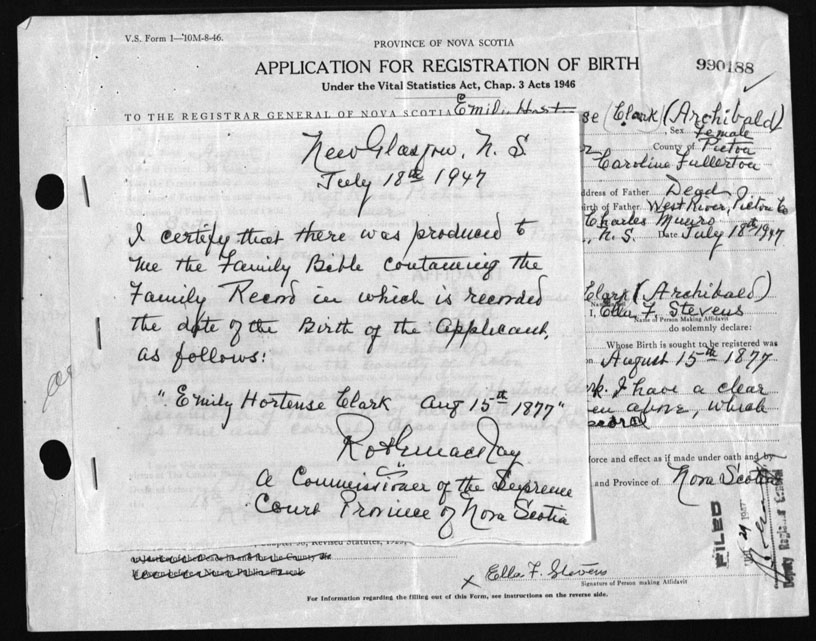 V.S. Form 1—10M-8-46.
PROVINCE OF NOVA SCOTIA
APPLICATION FOR REGISTRATION OF BIRTH
990188
Under the Vital Statistics Act, Chap. 3 Acts 1946
TO THE REGISTRAR GENERAL OF NOVA SCOTIA
Emily Hortense Clark (Archibald)
Sex Female
County of Pictou
Caroline Fullerton
Address of Father Dead
Birth of Father West River, Pictou Co
Charles Munro
N. S. Date July 18th 1947
New Glasgow, N. S.
July 18th 1947
I certify that there was produced to
me the Family Bible containing the
Family Record in which is recorded
the date of the Birth of the Applicant,
as follows:
"Emily Hortense Clark Aug 15th 1877"
A Commissioner of the Supreme
Court Province of Nova Scotia
Clark (Archibald)
I, Ella F. Stevens
Name of Person Making Affidavit
do solemnly declare:
Whose Birth is sought to be registered was
on August 15th 1877
I have a clear
above, which
record
force and effect as if made under oath and by
and Province of Nova Scotia
FILED
1947
Deputy Registrar General
Revised Statutes,
x Ella F. Stevens
Signature of Person making Affidavit
For Information regarding the filling out of this Form, see instructions on the reverse side.